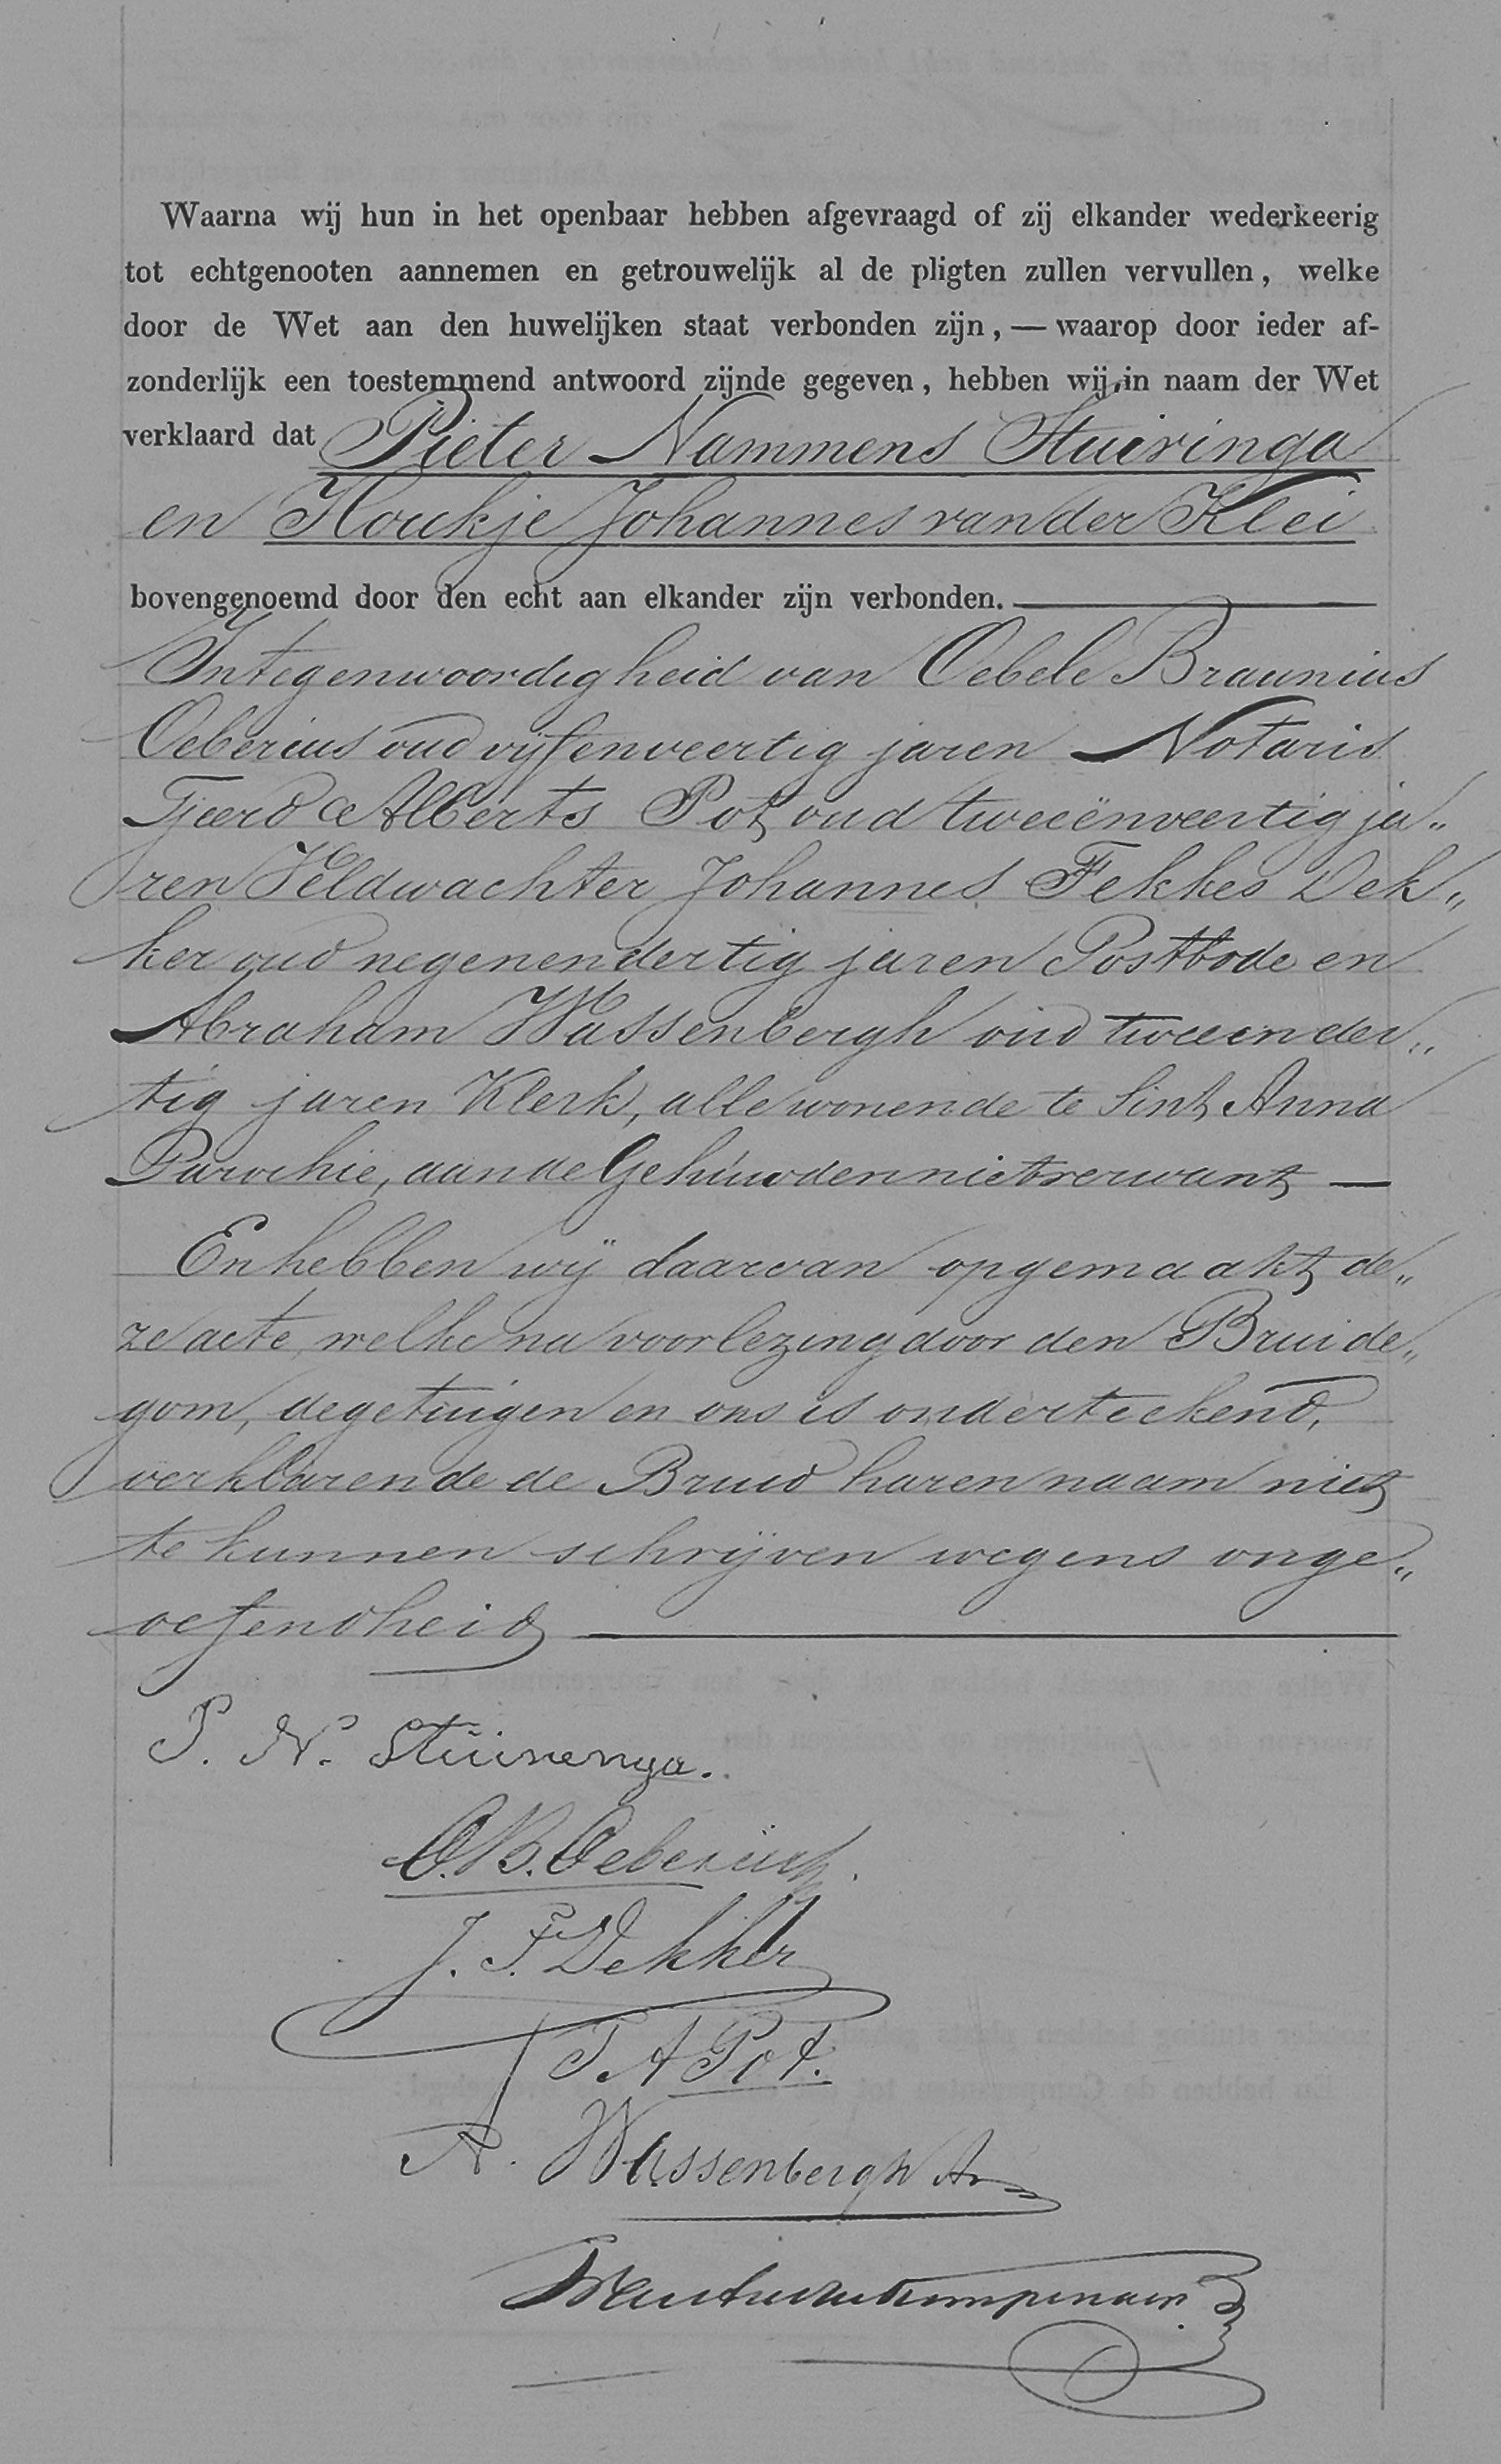 Waarna wij hun in het openbaar hebben afgevraagd of zij elkander wederkeerig
tot echtgenooten aannemen en getrouwelijk al de pligten zullen vervullen, welke
door de Wet aan den huwelijken staat verbonden zijn, — waarop door ieder af-
zonderlijk een toestemmend antwoord zijnde gegeven, hebben wij, in naam der Wet
verklaard dat Pieter Nammens Stuiringa
en Houkje Johannes van der Klei
bovengenoemd door den echt aan elkander zijn verbonden. —
In tegenwoordigheid van Oebele Braunius
Oeberius oud vijfenveertig jaren Notaris
Tjeerd Alberts Pot oud tweeënveertig ja„
ren Veldwachter Johannes Fekkes Dek„
ker oud negenendertig jaren Postbode en
Abraham Wassenbergh oud tweeender„
tig jaren Klerk, alle wonende te Sint Anna
Parochie, aan de Gehuwden niet verwant —
En hebben wij daarvan opgemaakt de„
ze acte, welke na voorlezing door den Bruide„
gom, de getuigen en ons is onderteekend,
verklarende de Bruid haren naam niet
te kunnen schrijven wegens onge„
oefendheid —
P. N. Stuirenga.
O. B. Oeberius.
J. F. Dekker
T A Pot.
A. Wassenbergh